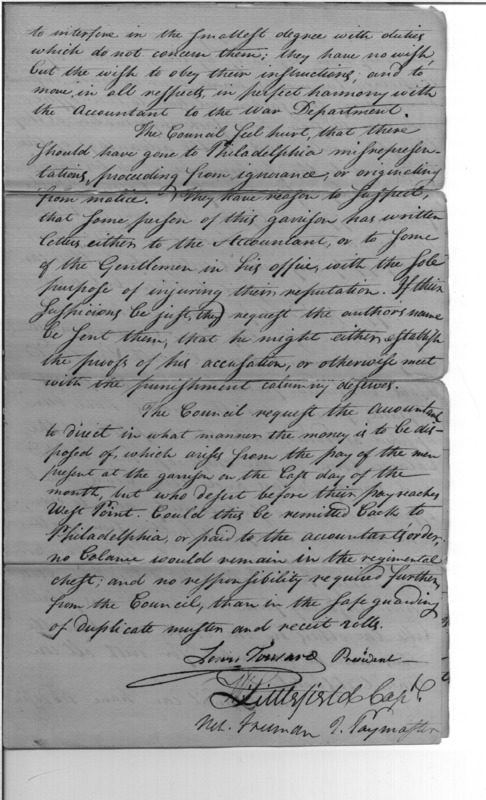 to interfere in the smallest degree with duties
which do not concern them; they have no wish
but the wish to obey their instructions, and to
move in all respects, in perfect harmony with
the Accountant to the War Department.
The Council feel hurt, that there
should have gone to Philadelphia misrepresen-
tations, proceeding from ignorance, or originating
from malice. They have reason to suspect,
that some person of this garrison has written
letters either to the Accountant, or to some
of the Gentlemen in his office, with the sole
purpose of injuring their reputation. If their
suspicions be just, they request the authors name
be sent them, that he might either establish
the proofs of his accusation, or otherwise meet
with the punishment calumny deserves.
The Council request the accountant
to direct in what manner the money is to be dis-
posed of, which arises from the pay of the men
present at the garrison on the last day of the
month, but who desert before their pay reaches
West Point. Could this be remitted back to
Philadelphia, or paid to the accountants order,
no balance would remain in the regimental
chest; and no responsibility required further
from the Council, than in the safe guarding
of duplicate muster and receit rolls.
Lewis Tousard President
Littlefield Capt
Net. Freeman Paymaster